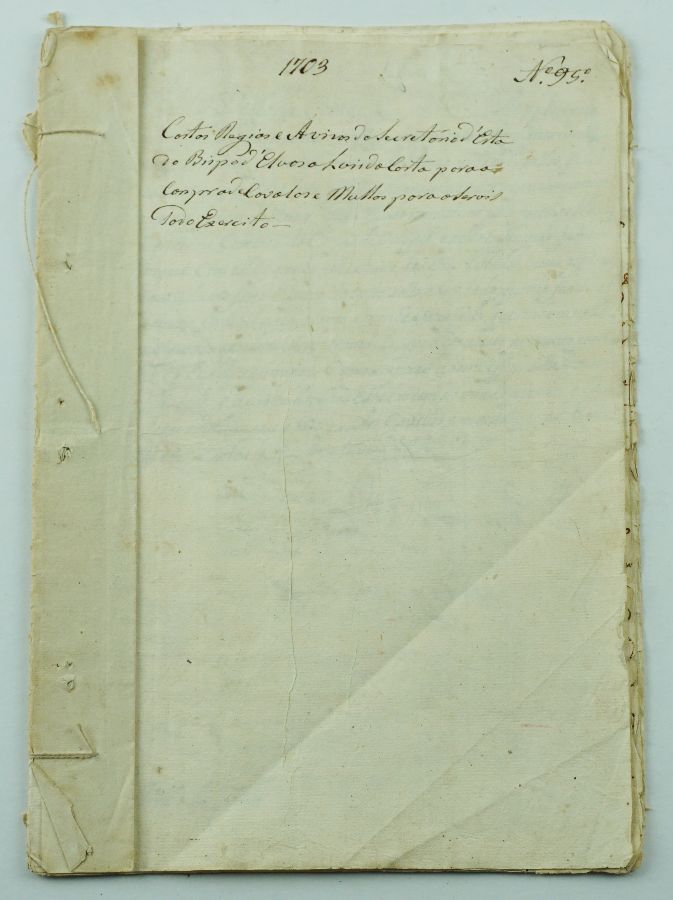 1703
N.º 95.º
Cartas Regias e Avizos do Secretario d'Esta
do Bispo d'Elvas a Luis da Costa para a
Compra de Cavalos e Mullas para o Servis
So do Exercito —